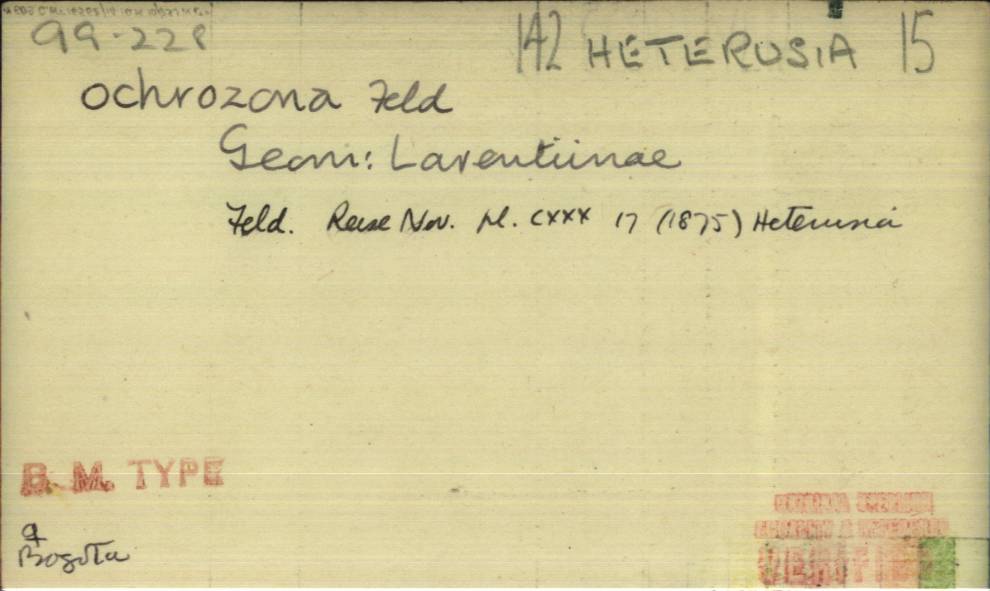 99-228
142 HETERUSIA 15
ochrozona Feld
Geom: Larentiinae
Feld. Reise Nov. pl. CXXX 17 (1875) Heterusia
B. M. TYPE
♀
Bogota
VERIFIED